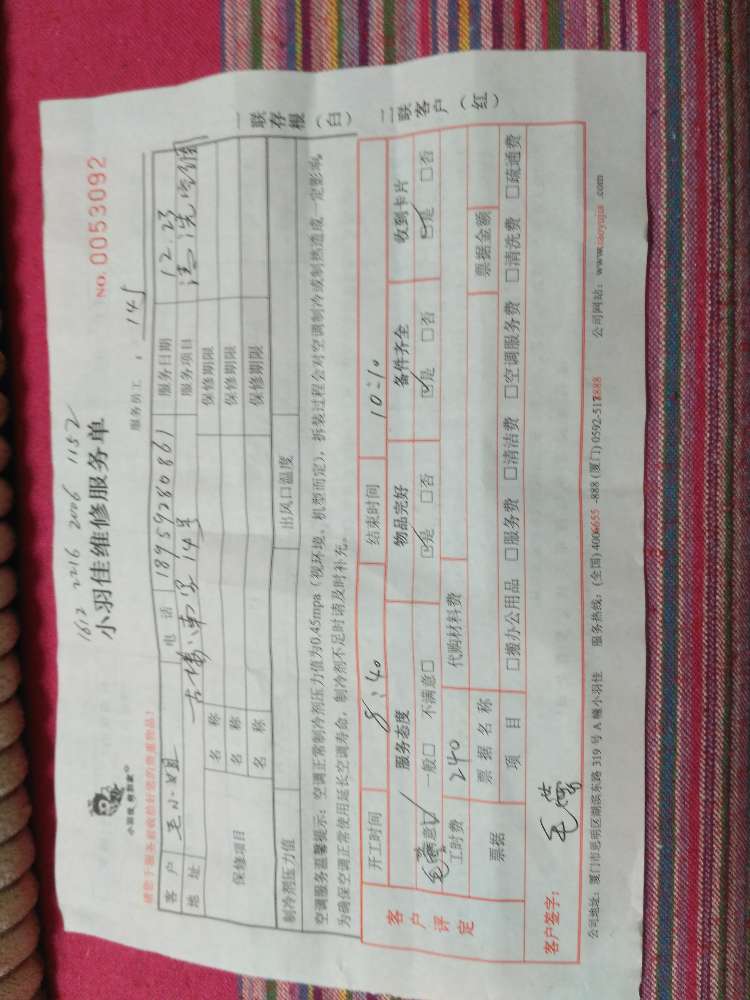 1612 2216 2006 1152
小羽佳维修服务单
NO. 0053092
服务员工： 145
请您于服务前收检好您的贵重物品！
客户 毛小姐 电话 18959280861 服务日期 12.23
地址 14号 服务项目 清洗空调
保修项目 名称 保修期限
名称 保修期限
名称 保修期限
制冷剂压力值 出风口温度
空调服务温馨提示：空调正常制冷剂压力值为0.45mpa（视环境、机型而定），拆装过程会对空调制冷或制热造成一定影响，
为确保空调正常使用延长空调寿命，制冷剂不足时请及时补充。
一联存根（白）
二联客户（红）
客户评定
开工时间 8:40 结束时间 10:10
服务态度 物品完好 备件齐全 收到卡片
满意☑ 一般□ 不满意□ ☑是 □否 ☑是 □否 ☑是 □否
工时费 240 代购材料费
票据 票据名称 票据金额
项目 □搬办公用品 □服务费 □清洁费 □空调服务费 □清洗费 □疏通费
客户签字：
公司地址：厦门市思明区湖滨东路 319 号 A 幢小羽佳 服务热线：(全国) 4006655-888 (厦门) 0592-5178888 公司网站：www.xiaoyujia.com